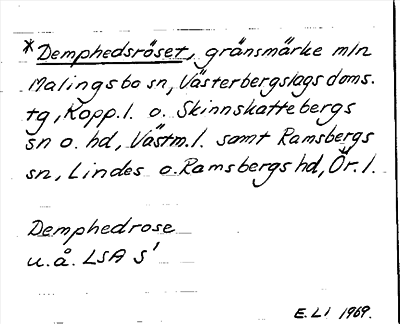 *Demphedsröset, gränsmärke mln
Malingsbo sn, Västerbergslags doms.
tg, Kopp. l. o. Skinnskattebergs
sn o. hd, Västm. l. samt Ramsbergs
sn, Lindes o. Ramsbergs hd, Ör. l.
Demphedrose
u. å. LSA S1
E. Li 1969.